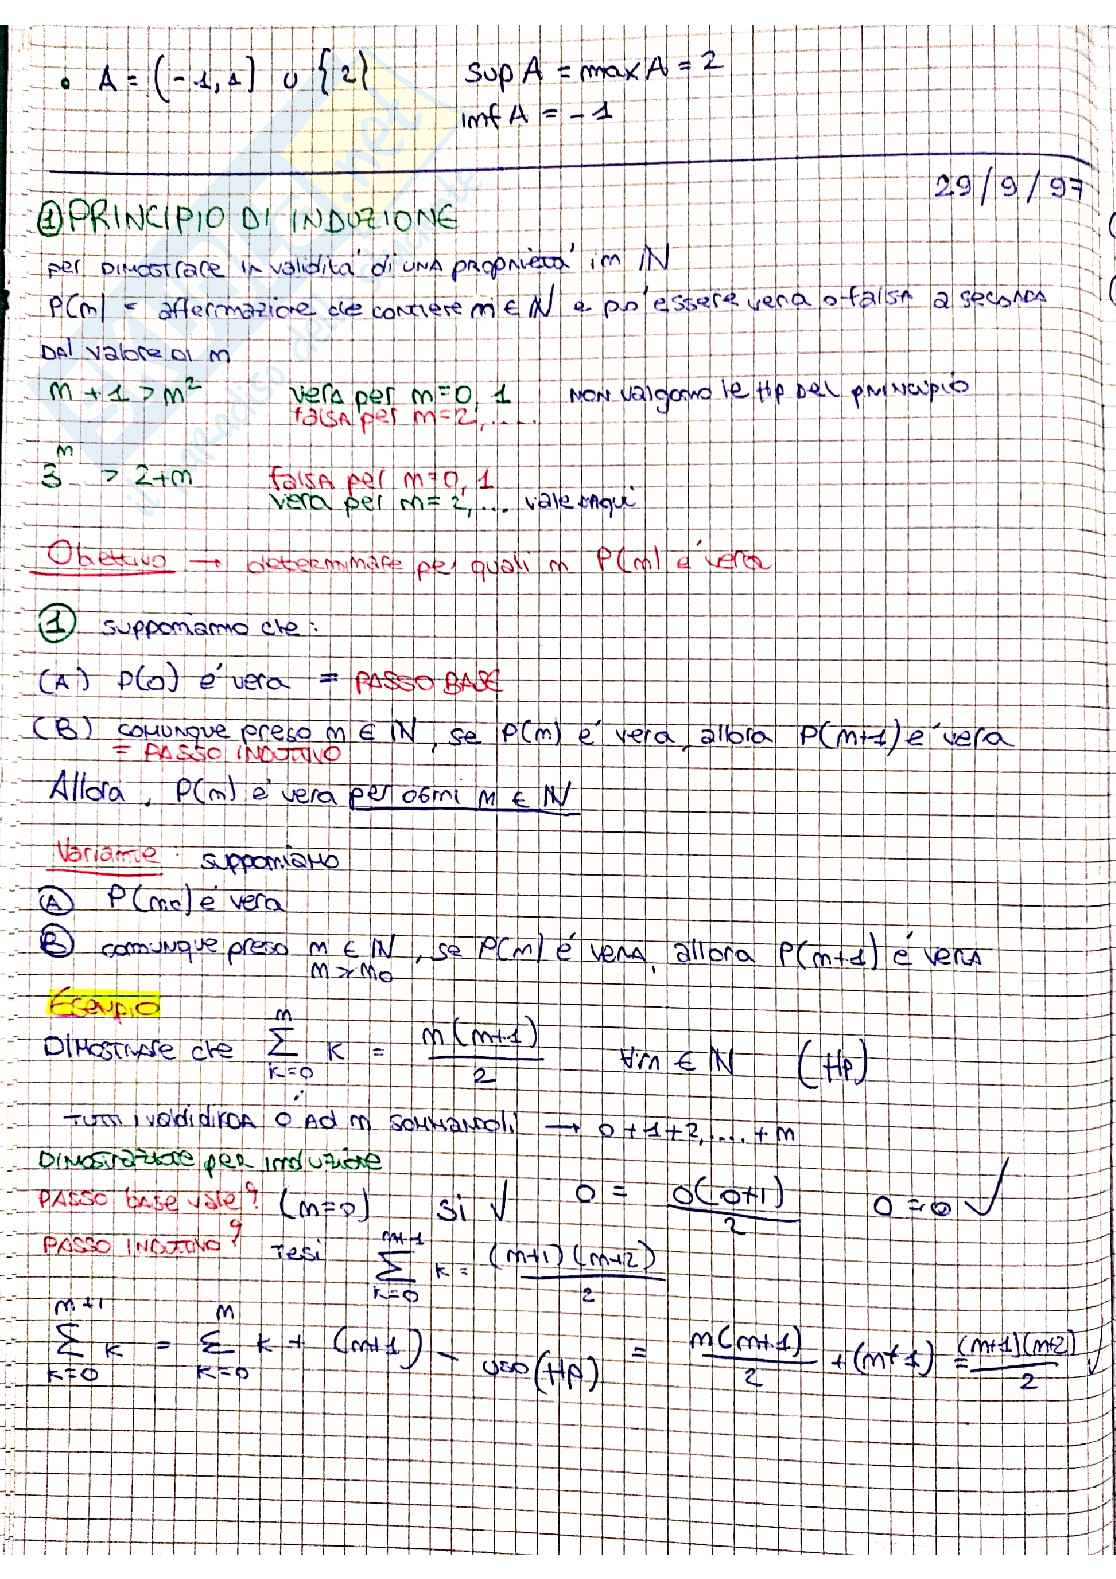 • A = (-1,1] ∪ {2} sup A = max A = 2
inf A = -1
29/9/97
① PRINCIPIO DI INDUZIONE
per DIMOSTRARE la validità di una proprietà in ℕ
P(n) = affermazione che contiene n ∈ ℕ e può essere vera o falsa a seconda
DAL valore DI n
n + 1 > n² vera per n=0, 1 NON valgono le Hp DEL principio
falsa per n=2, ....
3ⁿ > 2+n falsa per n=0, 1
vera per n=2, ... vale
Obiettivo → determinare per quali n P(n) è vera
① supponiamo che:
(A) P(0) è vera = PASSO BASE
(B) comunque preso n ∈ ℕ, se P(n) è vera, allora P(n+1) è vera
= PASSO INDUTTIVO
Allora, P(n) è vera per ogni n ∈ ℕ
Variante: supponiamo
Ⓐ P(n₀) è vera
Ⓑ comunque preso n ∈ ℕ, se P(n) è vera, allora P(n+1) è vera
n ≥ n₀
Esempio
DIMOSTRARE che ∑_{k=0}^{n} k = n(n+1)/2 ∀n ∈ ℕ (Hp)
TUTTI i valori di k DA 0 AD n SOMMANDOLI → 0+1+2,...+n
DIMOSTRAZIONE per induzione
PASSO base vale? (n=0) si √ 0 = 0(0+1)/2 0=0 √
PASSO INDUTTIVO? Tesi ∑_{k=0}^{n+1} k = (n+1)(n+2)/2
∑_{k=0}^{n+1} k = ∑_{k=0}^{n} k + (n+1) - uso (Hp) = n(n+1)/2 + (n+1) = (n+1)(n+2)/2 √